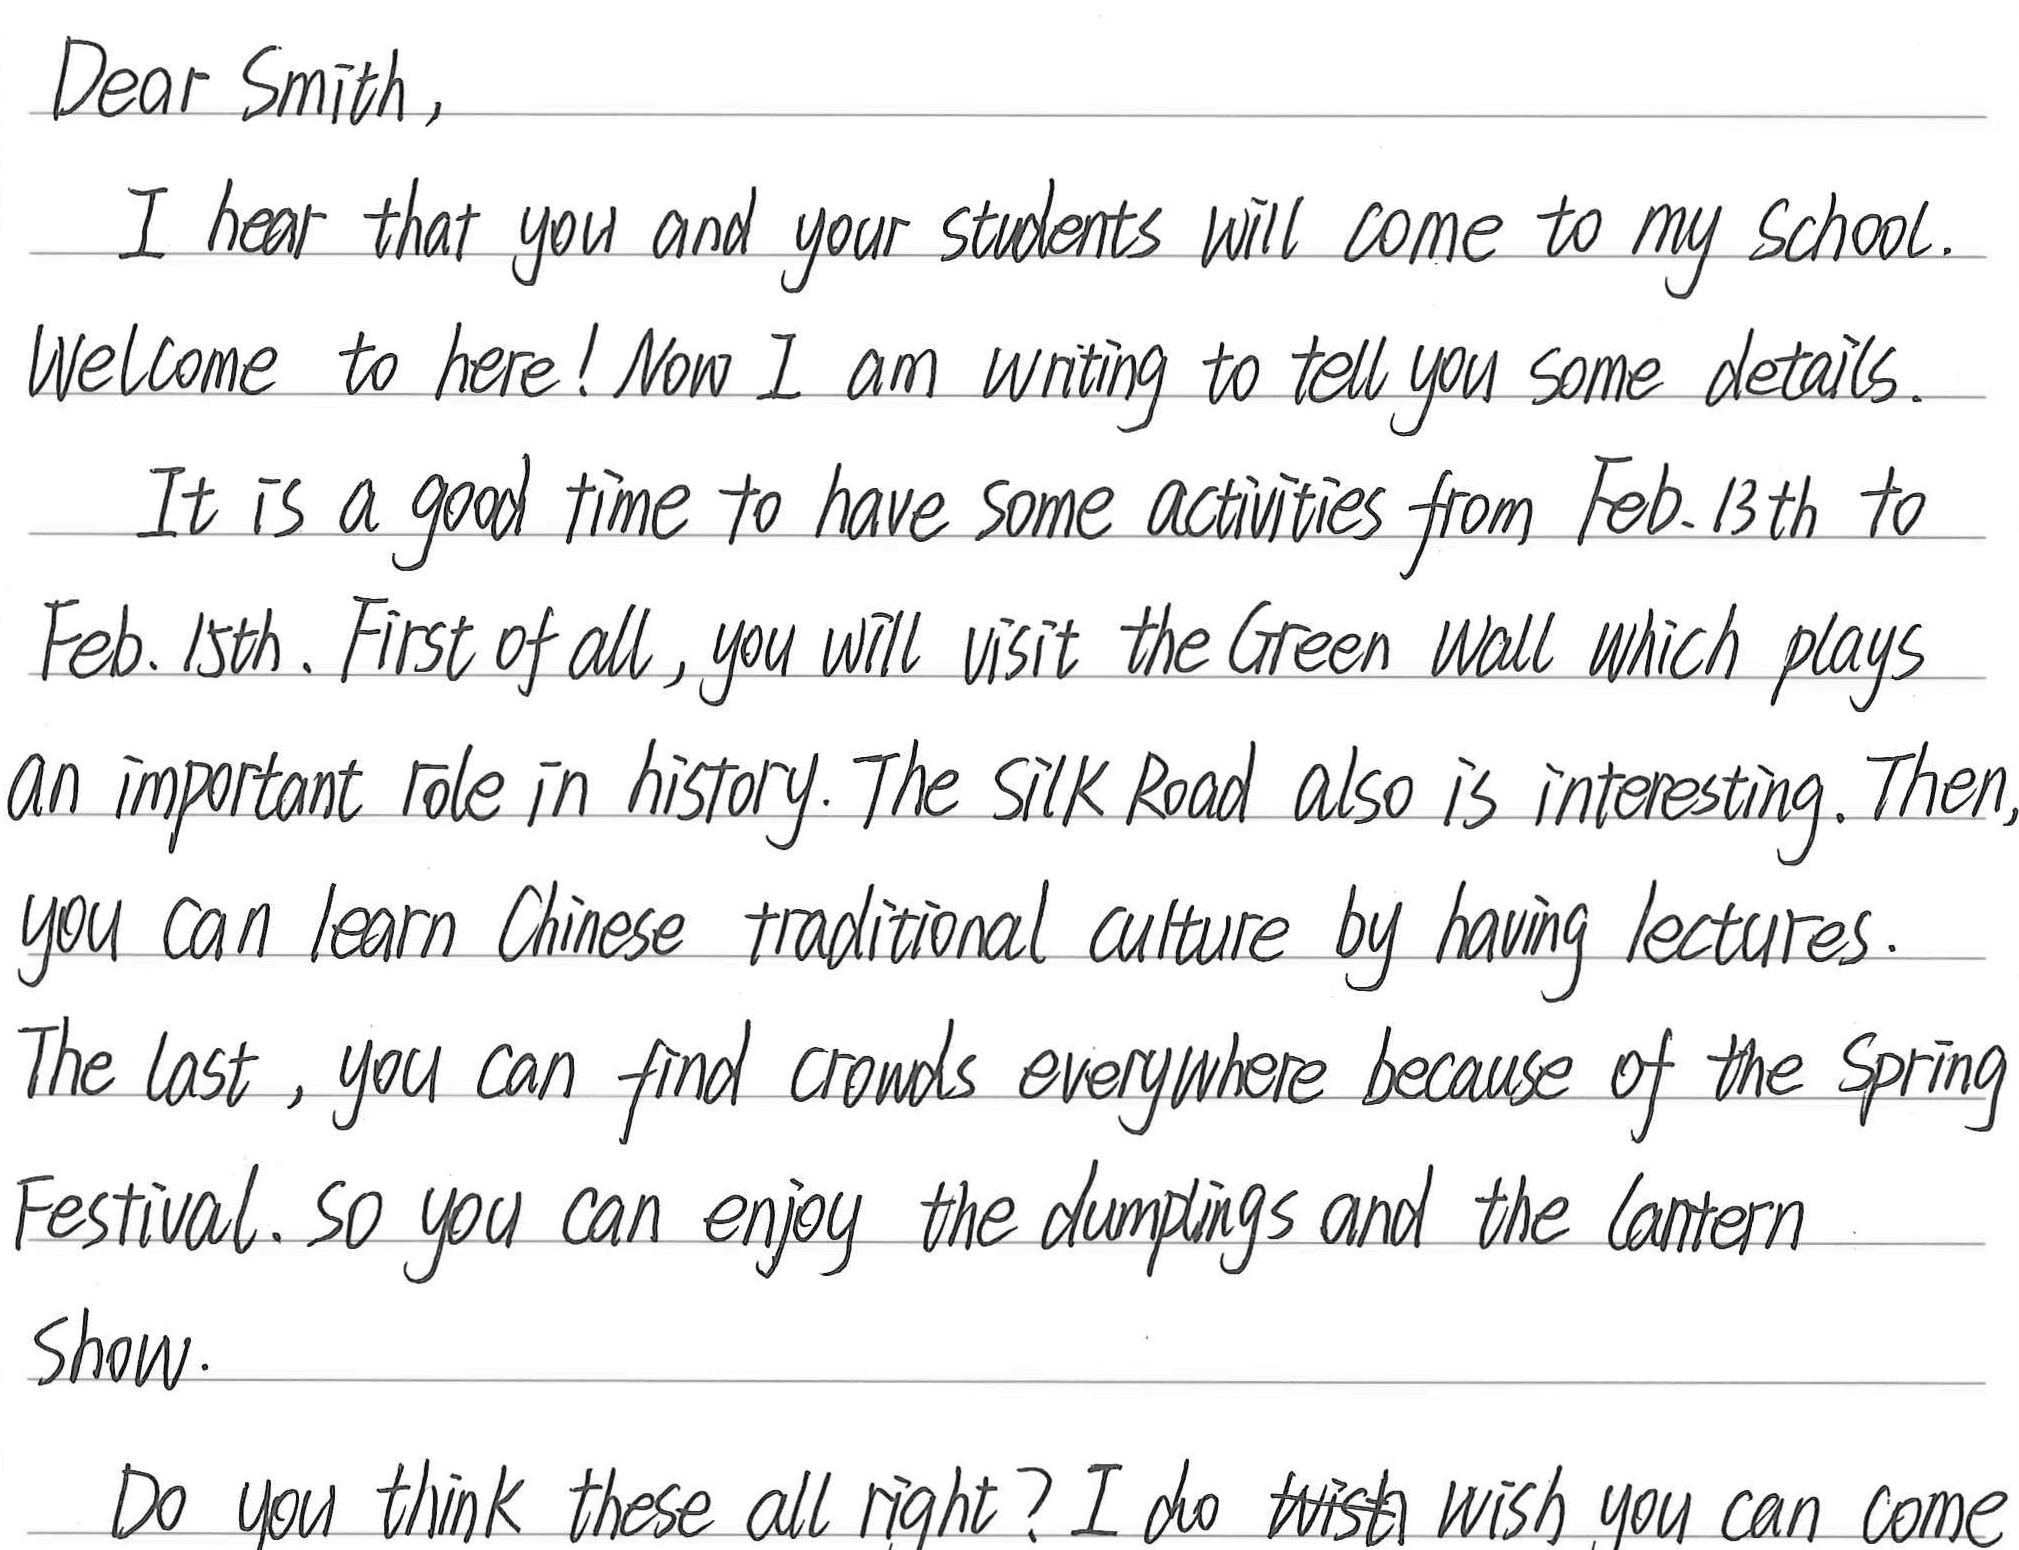 Dear Smith,
I hear that you and your students will come to my school.
Welcome to here! Now I am writing to tell you some details.
It is a good time to have some activities from Feb. 13th to
Feb. 15th. First of all, you will visit the Green Wall which plays
an important role in history. The Silk Road also is interesting. Then,
you can learn Chinese traditional culture by having lectures.
The last, you can find crowds everywhere because of the Spring
Festival. So you can enjoy the dumplings and the lantern
show.
Do you think these all right? I do wish you can come